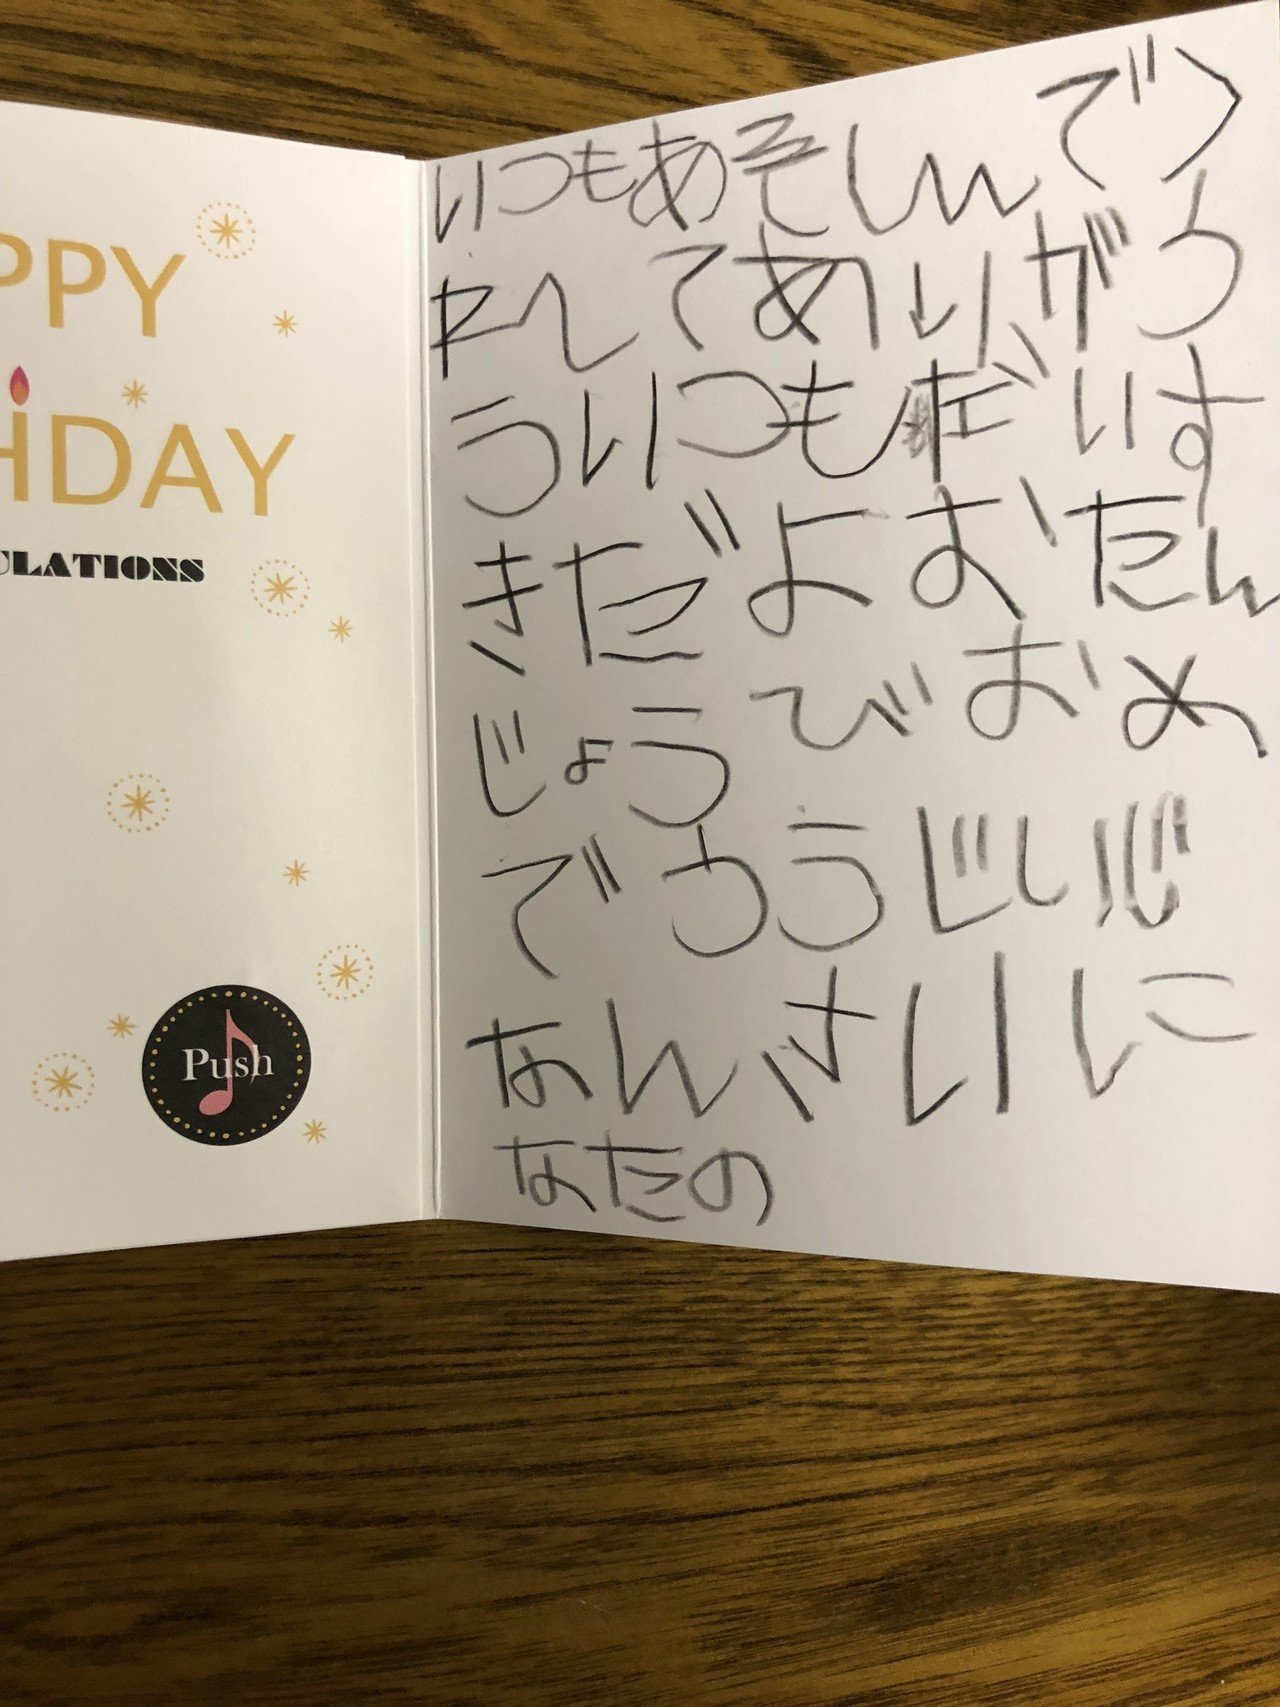 PPY
HDAY
ULATIONS
Push
いつもあそんでく
れてありがと
ういつもだいす
きだよおたん
じょうびおめ
でとうじいじ
なんさいに
なたの